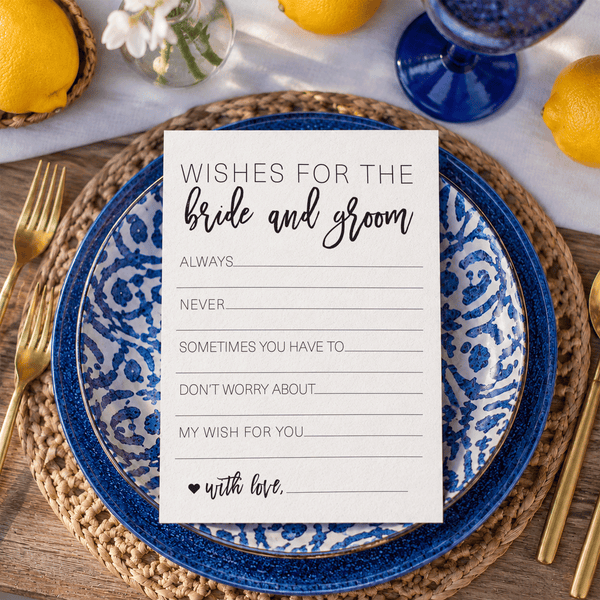 WISHES FOR THE
bride and groom
ALWAYS
NEVER
SOMETIMES YOU HAVE TO
DON'T WORRY ABOUT
MY WISH FOR YOU
♥ with love,